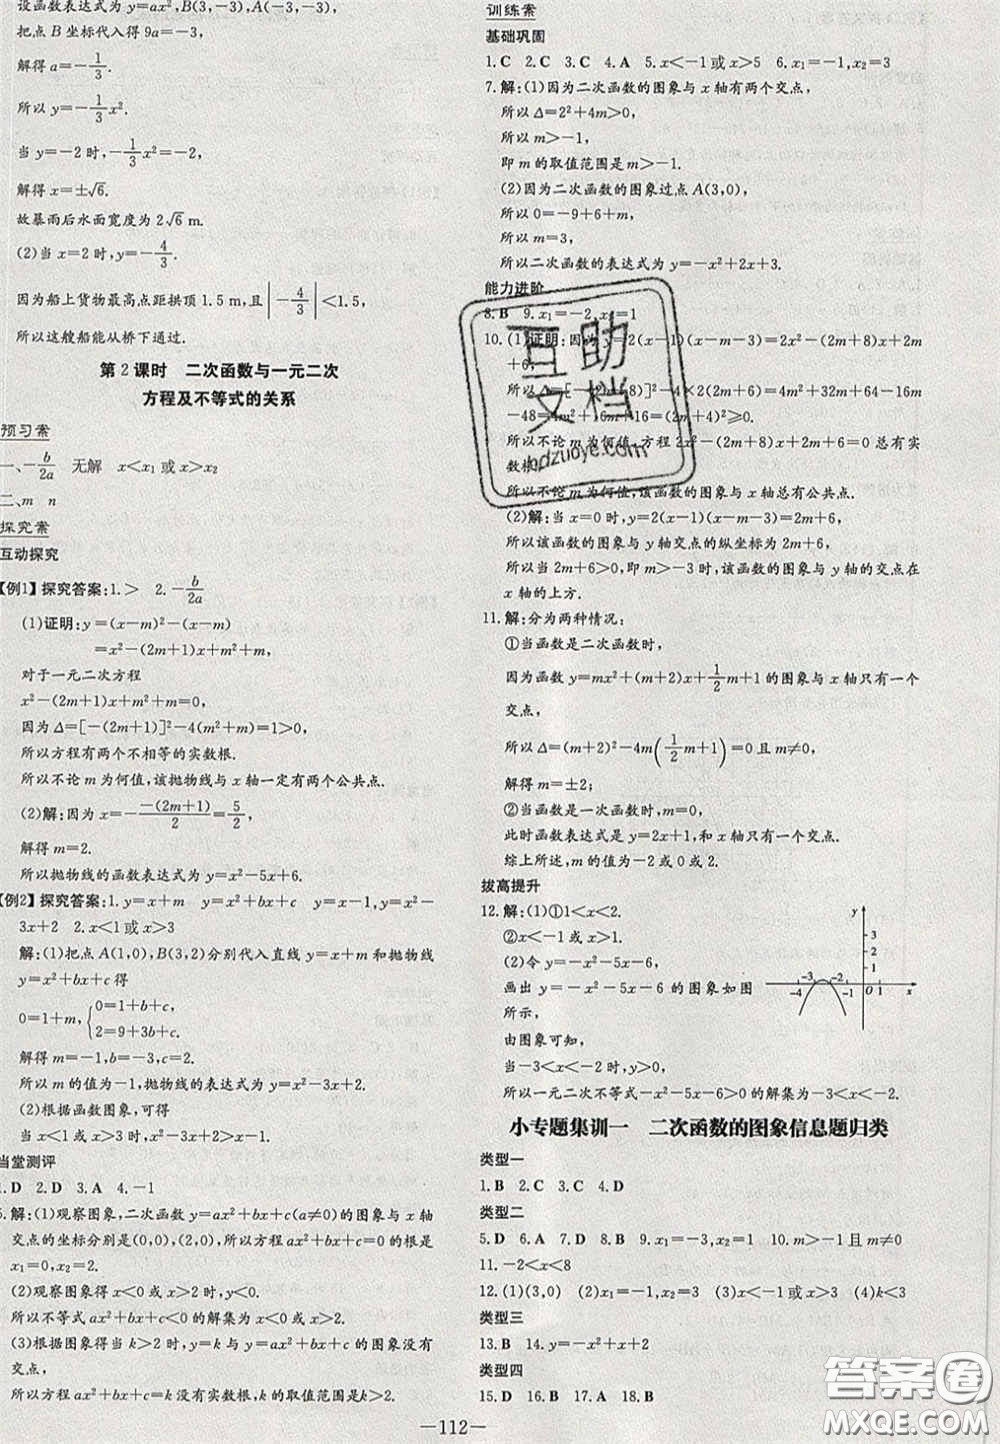 设函数表达式为 y=ax²,B(3,-3),A(-3,-3),
把点 B 坐标代入得 9a=-3,
解得 a=-1/3.
所以 y=-1/3x².
当 y=-2 时,-1/3x²=-2,
解得 x=±√6.
故暴雨后水面宽度为 2√6 m.
(2)当 x=2 时,y=-4/3.
因为船上货物最高点距拱顶 1.5 m,且|-4/3|<1.5,
所以这艘船能从桥下通过.
第 2 课时 二次函数与一元二次
方程及不等式的关系
预习案
一、-b/2a 无解 x<x₁ 或 x>x₂
二、m n
探究案
互动探究
【例1】探究答案:1.> 2.-b/2a
(1)证明:y=(x-m)²-(x-m)
=x²-(2m+1)x+m²+m,
对于一元二次方程
x²-(2m+1)x+m²+m=0,
因为 Δ=[-(2m+1)]²-4(m²+m)=1>0,
所以方程有两个不相等的实数根.
所以不论 m 为何值,该抛物线与 x 轴一定有两个公共点.
(2)解:因为 x=-(-(2m+1))/2=5/2,
解得 m=2.
所以抛物线的函数表达式为 y=x²-5x+6.
【例2】探究答案:1.y=x+m y=x²+bx+c y=x-1,y=x²-
3x+2 2.x<1 或 x>3
解:(1)把点 A(1,0),B(3,2)分别代入直线 y=x+m 和抛物线
y=x²+bx+c 得
0=1+m,{0=1+b+c,
2=9+3b+c.
解得 m=-1,b=-3,c=2.
所以 m 的值为-1,抛物线的表达式为 y=x²-3x+2.
(2)根据函数图象,可得
当 x<1 或 x>3 时,x²+bx+c>x+m.
当堂测评
1.D 2.D 3.A 4.-1
5.解:(1)观察图象,二次函数 y=ax²+bx+c(a≠0)的图象与 x 轴
交点的坐标分别是(0,0),(2,0),所以方程 ax²+bx+c=0 的根是
x₁=0,x₂=2.
(2)观察图象得 x<0 或 x>2 时,y<0.
所以不等式 ax²+bx+c<0 的解集为 x<0 或 x>2.
(3)根据图象得当 k>2 时,y=k 与 y=ax²+bx+c 的图象没有
交点,
所以方程 ax²+bx+c=k 没有实数根,k 的取值范围是 k>2.
训练案
基础巩固
1.C 2.C 3.C 4.A 5.x<-1 或 x>5 6.x₁=-1,x₂=3
7.解:(1)因为二次函数的图象与 x 轴有两个交点,
所以 Δ=2²+4m>0,
所以 m>-1.
即 m 的取值范围是 m>-1.
(2)因为二次函数的图象过点 A(3,0),
所以 0=-9+6+m,
所以 m=3,
所以二次函数的表达式为 y=-x²+2x+3.
能力进阶
8.B 9.x₁=-2,x₂=1
10.(1)证明:因为 y=2(x-1)(x-m-3)=2x²-(2m+8)x+2m
+6.
所以 Δ=[-(2m+8)]²-4×2(2m+6)=4m²+32m+64-16m
-48=4m²+16m+16=(2m+4)²≥0.
所以不论 m 为何值,方程 2x²-(2m+8)x+2m+6=0 总有实
数根.
所以不论 m 为何值,该函数的图象与 x 轴总有公共点.
(2)解:当 x=0 时,y=2(x-1)(x-m-3)=2m+6,
所以该函数的图象与 y 轴交点的纵坐标为 2m+6,
所以当 2m+6>0,即 m>-3 时,该函数的图象与 y 轴的交点在
x 轴的上方.
11.解:分为两种情况:
①当函数是二次函数时,
因为函数 y=mx²+(m+2)x+1/2m+1 的图象与 x 轴只有一个
交点,
所以 Δ=(m+2)²-4m(1/2m+1)=0 且 m≠0,
解得 m=±2;
②当函数是一次函数时,m=0,
此时函数表达式是 y=2x+1,和 x 轴只有一个交点.
综上所述,m 的值为-2 或 0 或 2.
拔高提升
12.解:(1)①1<x<2.
②x<-1 或 x>5.
(2)令 y=-x²-5x-6.
画出 y=-x²-5x-6 的图象如图
所示,
由图象可知,
当-3<x<-2 时,y>0,
所以一元二次不等式-x²-5x-6>0 的解集为-3<x<-2.
y
3
2
1
-4 -3 -2 -1 O 1 x
小专题集训一 二次函数的图象信息题归类
类型一
1.B 2.C 3.C 4.D
类型二
5.D 6.D 7.D 8.B 9.x₁=-1,x₂=2 10.x<-2 或 x>8
11.-2<x<8
12.(1)(3,0) (2)x₁=-1,x₂=3 (3)x<-1 或 x>3 (4)k<3
类型三
13.B 14.y=-x²+x+2
类型四
15.D 16.B 17.A 18.B
—112—
互助文档
hdzuoye.com
答案圈
MXQE.COM